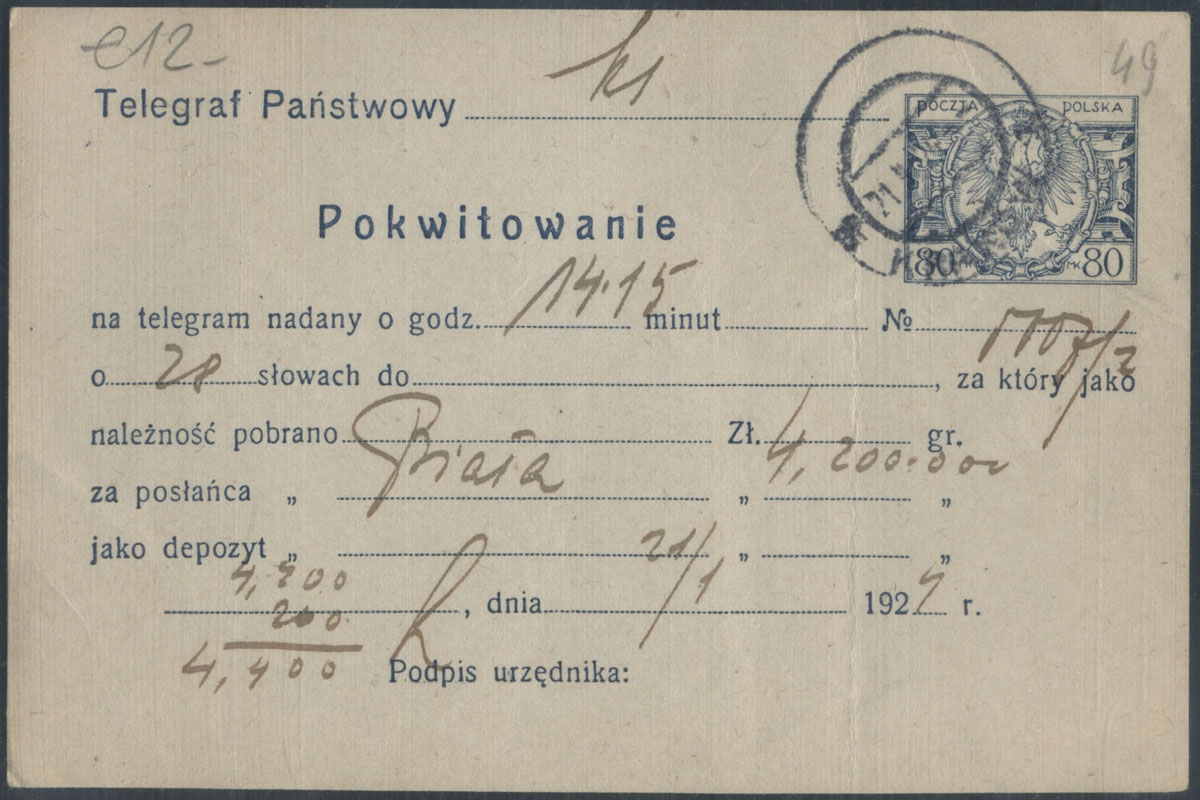 e12-
49
Telegraf Państwowy
POCZTA POLSKA
80 MK 80
Pokwitowanie
na telegram nadany o godz. 14.15 minut №
o 28 słowach do , za który jako
należność pobrano Zł. gr.
Biała 4,200.000
za posłańca „ „ „
jako depozyt „ „ „
4,200
, dnia 21/1 1924 r.
200
4,400 Podpis urzędnika: